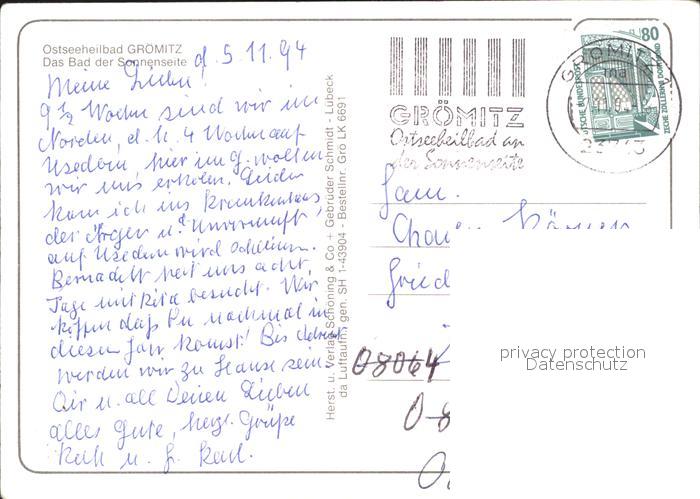 Ostseeheilbad GRÖMITZ
Das Bad der Sonnenseite
d. 5.11.94
Meine Lieben!
9 ½ Wochen sind wir im
Norden, d.h. 4 Wochen auf
Usedom, hier in G. wollen
wir uns erholen. Leider
kam ich ins Krankenhaus
der Ärger u. Unvernunft
auf Usedom wird
Bernadett hat uns acht
Tage mit Rita besucht. Wir
hoffen daß Du nochmal in
diesem Jahr kommst! Bis Advent
werden wir zu Hause sein.
Dir u. all Deinen Lieben
alles Gute, herzl. Grüße
Kath u. H. Karl.
Herst. u. Verlag Schöning & Co + Gebrüder Schmidt - Lübeck
da Luftaufn. gen. SH 1-43904 - Bestellnr. Grö LK 6691
GRÖMITZ
Ostseeheilbad an
der Sonnenseite
80
DEUTSCHE BUNDESPOST
ZECHE ZOLLERN II DORTMUND
GRÖMITZ
ma
23743
Fam.
Fried
08064
privacy protection
Datenschutz